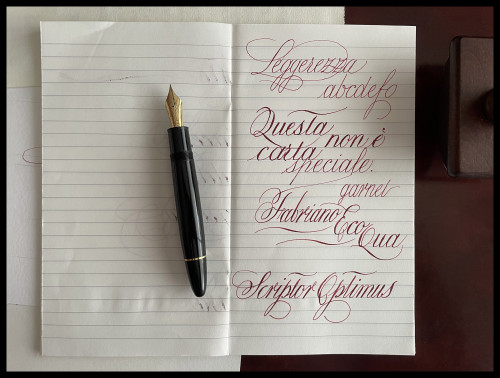 Leggerezza
abcdefo
Questa non è
carta speciale.
garnet
Fabriano Eco
Qua
Scriptor Optimus